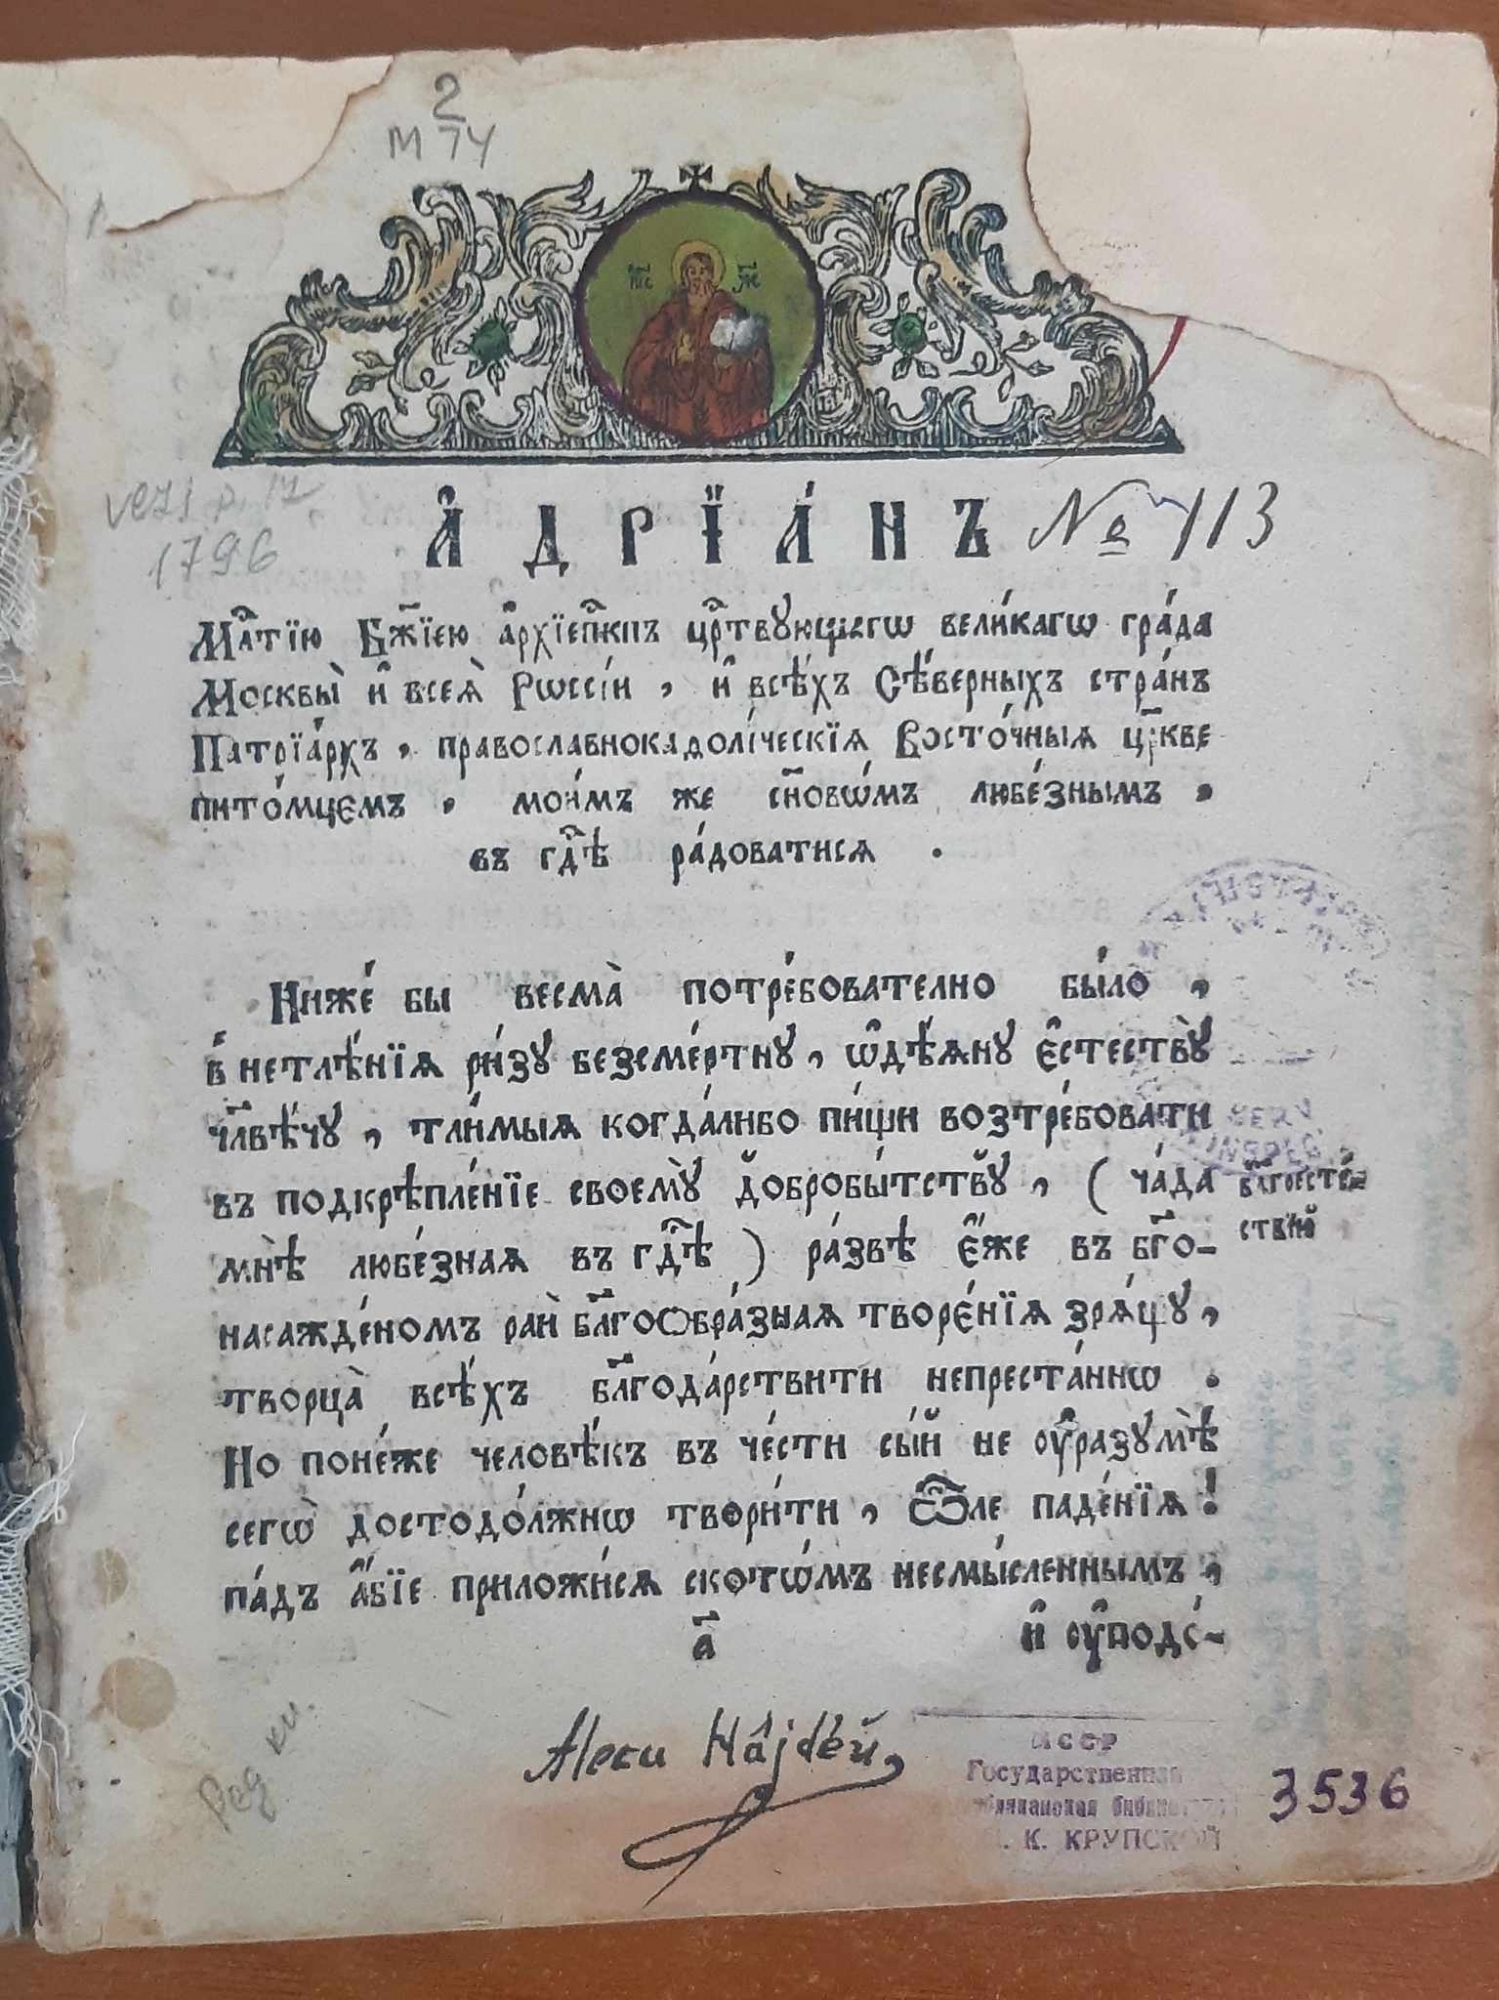 2
М 74
І҆С ХС
А҆ДРЇА́НЪ
№ 113
vezi p. 17
1796
Мл҃тїю Бж҃їею а҆рхїепⷭ҇кпъ црⷭ҇твꙋющагѡ вели́кагѡ гра́да
Москвы̀ и҆ всеѧ̀ Рѡссі́и , и҆ всѣ́хъ Сѣ́верныхъ стра́нъ
Патрїа́рхъ , православнокаѳолі́ческїѧ Восто́чныѧ цр҃кве
пито́мцємъ , мои́мъ же сн҃овѡ́мъ любе́знымъ ,
въ гдⷭ҇ѣ ра́доватисѧ .
Ниже́ бы весма̀ потре́бователно бы́ло ,
в̾ нетлѣ́нїѧ ри́зꙋ безсме́ртнꙋ , ѡ҆дѣ́ѧнꙋ є҆стествꙋ̀
чл҃вѣ́чꙋ , тли́мыѧ когда́либо пи́щи возтре́бовати
въ подкрѣпле́нїе своемꙋ̀ добробы́тствꙋ , ( ча́да
мнѣ̀ любе́знаѧ въ гдⷭ҇ѣ ) ра́звѣ є҆́же въ бг҃о-
насажде́номъ раѝ бл҃гоѻбра́знаѧ творе́нїѧ зрѧ́щꙋ ,
творца̀ всѣ́хъ бл҃года́рствити непреста́ннѡ .
Но поне́же человѣ́къ въ че́сти сы́й не ᲂу҆разꙋмѣ̀
сегѡ̀ достодо́лжнѡ твори́ти , ѽле паде́нїѧ !
па́дъ а҆́бїе приложи́сѧ скотѡ́мъ несмы́сленнымъ ,
а҃
и҆ ᲂу҆подо́-
Ред кн.
МССР
Государственная
библиотека
К. КРУПСКОЙ
3536